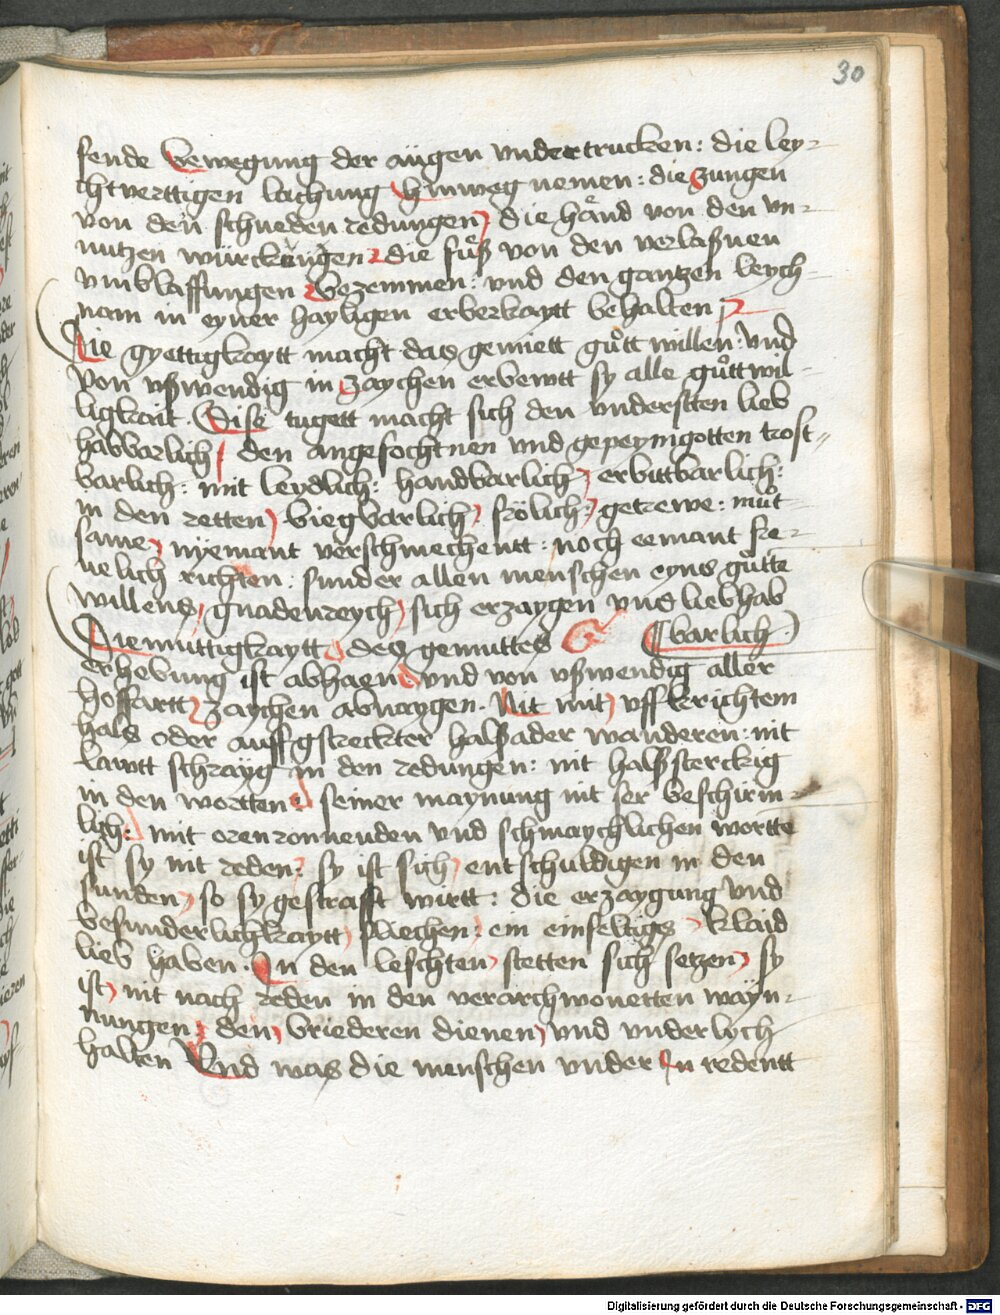 30
sende bewegung der augen vndertrucken: die ley-
chtverttigen lachung hinweg nemen: die zungen
von den schneden redungen die hånd von den vn-
nutzen würckungen die fůß von den verlaßnen
vmblaffungen bezemmen: vnd den gantzen leych-
nam in eyner hayligen erberkaytt behalten
Die gyettigkaytt macht das gemiett gůtt willen: vnd
von vßwendig in zaychen erbewtt sy alle gůttwil-
ligkait. Diße tugett macht sich den vndersten lieb
habbarlich: den angefochtnen vnd gepeyngotten trost-
barlich: mit leydlich: handbarlich: erbittbarlich:
in den retten biegbarlich: frölich: getrewe: můt-
same, nyemant verschmechentt: noch eemant fre-
uelich richten: sunder allen menschen eyns gůtte
willens gnadenreych sich erzaygen vnd liebhab
barlich
Diemüttigkaytt des gemuttes
erhebung ist abhaen: vnd von vßwendig aller
hoffartt zaychen abnaygen. Nit mit vffkrichtem
hals oder auffgstreckter halßader wanderen: nit
lawtt schrayg in den redungen: nit halßsterckig
in den wortten: seiner maynung nit ser beschirm-
lich: mit orenronnenden vnd schmaychlichen wortte
ist sy nit reden: sy ist sich entschuldigen in den
sunden, so sy gestrafft wirtt: die erzaygung vnd
besunderlichkaytt fliechen: ein einfeltigs klaid
lieb haben. In den leschten stetten sich setzen, sy
ist nit nach reden in den verarchwonetten mayn-
nungen den brüederen dienen vnd vnderlych
halten Vnd was die menschen vnder in redentt
Digitalisierung gefördert durch die Deutsche Forschungsgemeinschaft - DFG